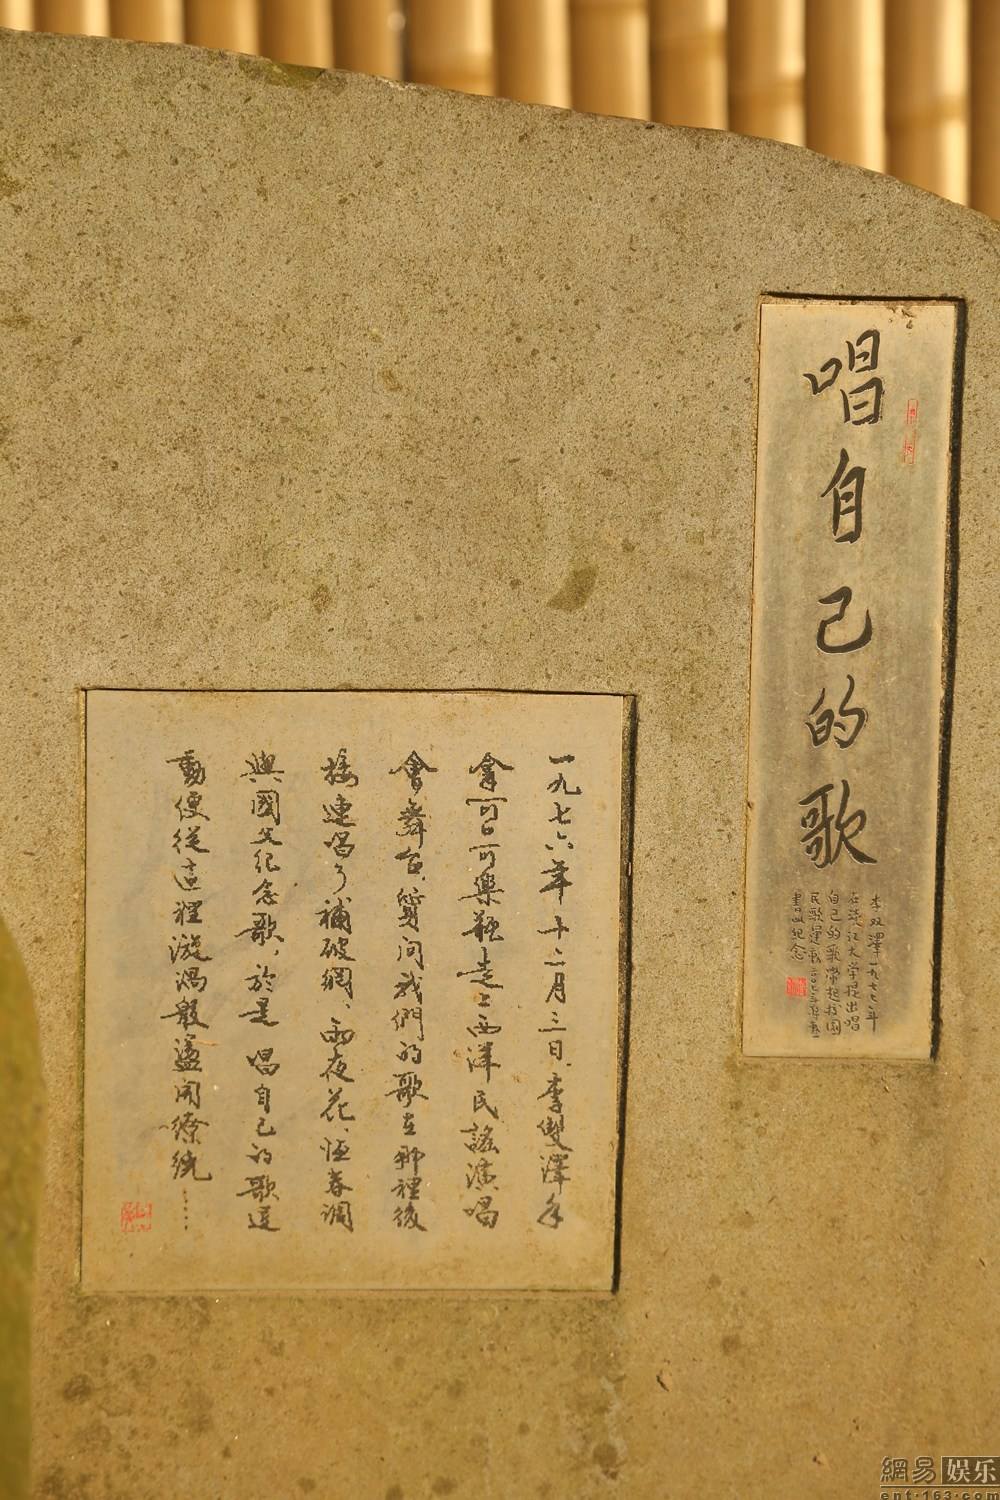 唱自己的歌
李双澤一九七七年
在淡江大学提出唱
自己的歌带起校園
民歌運動
書以紀念
一九七六年十二月三日，李雙澤手
拿可口可樂瓶走上西洋民謠演唱
會舞台，質问我們的歌在那裡後
接連唱了補破網、雨夜花、恆春調
與國父紀念歌，於是 唱自己的歌運
動便從這裡漩渦般盪開繚繞……
網易娱乐
ent.163.com